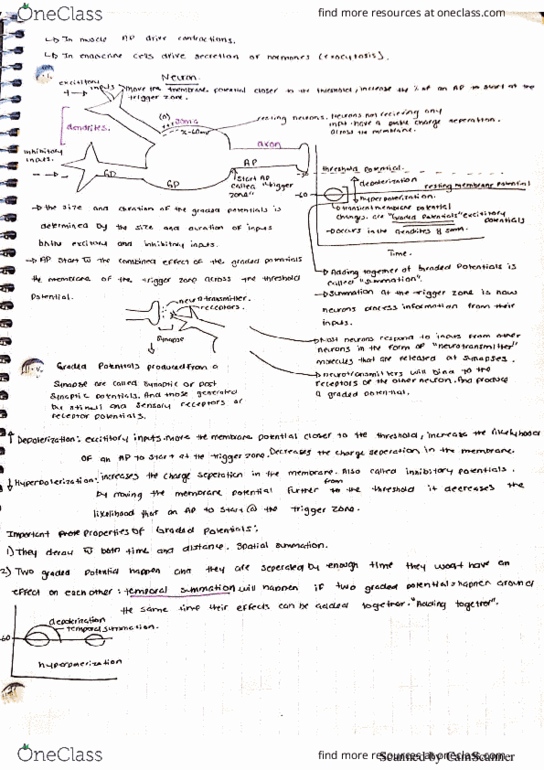 OneClass
find more resources at oneclass.com
↳ In muscle AP drive contractions.
↳ In endocrine cells drive secretion of hormones (exocytosis).
Neuron
excititory inputs
→ move the membrane potential closer to the threshold, increase the % of an AP to start at the trigger zone.
resting neurons. Neurons not recieving any input have a charge seperation across the membrane.
dendrites.
soma
axon
AP
inhibitory inputs.
GP
GP
Start AP called "trigger zone"
threshold potential.
depolerization
resting membrane potential
-60
hyperpolerization.
↳ transient membrane potential changes, are "Graded Potentials" excititory potentials
→ occurs in the dendrites & soma.
Time.
→ the size and duration of the graded potentials is
determined by the size and duration of inputs
both excitory and inhibitory inputs.
→ AP start w the combined effect of the graded potentials
the membrane of the trigger zone across the threshold
potential.
→ Adding together of Graded Potentials is
called "summation".
→ Summation at the trigger zone is how
neurons process information from their
inputs.
neurotransmitter.
receptors.
Synapse
→ Most neurons respond to inputs from other
neurons in the form of "neurotransmitter"
molecules that are released at synapses.
→ neurotransmitters will bind to the
receptors of the other neuron. And produce
a graded potential.
Graded Potentials produced from a
Synapse are called Synaptic or post
Synaptic potentials. And those generated
by stimuli and sensory receptors or
receptor potentials.
↑ Depolerization: excititory inputs move the membrane potential closer to the threshold, increase the likelyhood
of an AP to start at the trigger zone. Decreases the charge seperation in the membrane.
↓ Hyperpolerization: increases the charge seperation in the membrane. Also called inhibitory potentials.
by moving the membrane potential further from the threshold it decreases the
likelihood that an AP to start @ the trigger zone.
Important properties of Graded Potentials:
1) They decay w both time and distance. Spatial summation.
2) Two graded potential happen and they are seperated by enough time they wont have an
effect on each other: temporal summation will happen if two graded potentials happen around
the same time their effects can be added together. "Adding together".
depolerization
temporal summation.
-60
hyperpolerization
OneClass
find more resources at oneclass.com
Scanned by CamScanner